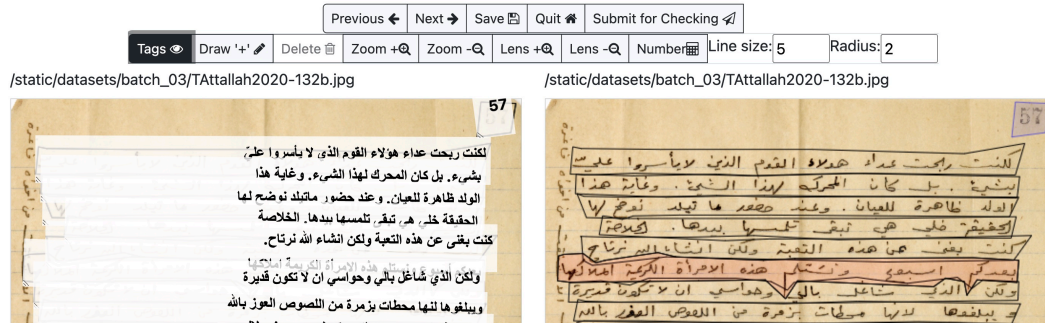 Previous Next Save Quit Submit for Checking
Tags Draw '+' Delete Zoom + Zoom - Lens + Lens - Number Line size: 5 Radius: 2
/static/datasets/batch_03/TAttallah2020-132b.jpg
57
لكنت ربحت عداء هؤلاء القوم الذي لا يأسروا عليّ
بشيء. بل كان المحرك لهذا الشيء. وغاية هذا
الولد ظاهرة للعيان. وعند حضور ماتيلد نوضح لها
الحقيقة خلي هي تبقى تلمسها بيدها. الخلاصة
كنت بغنى عن هذه التعبة ولكن انشاء الله نرتاح.
هذه الامرأة الكريمة املاكها
ولكن الذي شاغل بالي وحواسي ان لا تكون قديرة
ويبلغوها لنها محطات بزمرة من اللصوص العوز بالله
/static/datasets/batch_03/TAttallah2020-132b.jpg
57
لكنت ربحت عداء هولاء القوم الذي لا يأسروا عليّ
بشيء. بل كان المحرك لهذا الشيء. وغاية هذا
الولد ظاهرة للعيان. وعند حضور ماتيلد نوضح لها
الحقيقة خلي هي تبقى تلمسها بيدها. الخلاصة
كنت بغنى عن هذه التعبة ولكن انشاء الله نرتاح
بعدكم اسبوعي ونستلم هذه الامرأة الكريمة املاكها
ولكن الذي شاغل بالي وحواسي ان لا تكون قديرة
و يبلغوها لانها محطات بزمرة من اللصوص العوز بالله